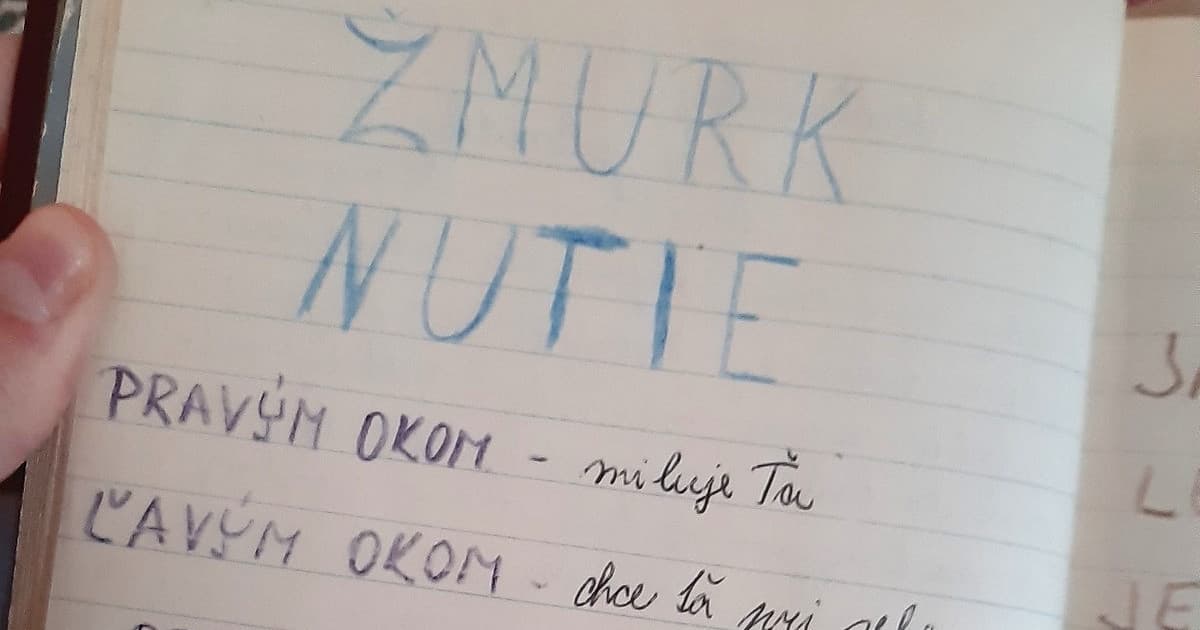 ŽMURK
NUTIE
PRAVÝM OKOM - miluje Ťa
ĽAVÝM OKOM - chce ťa pri